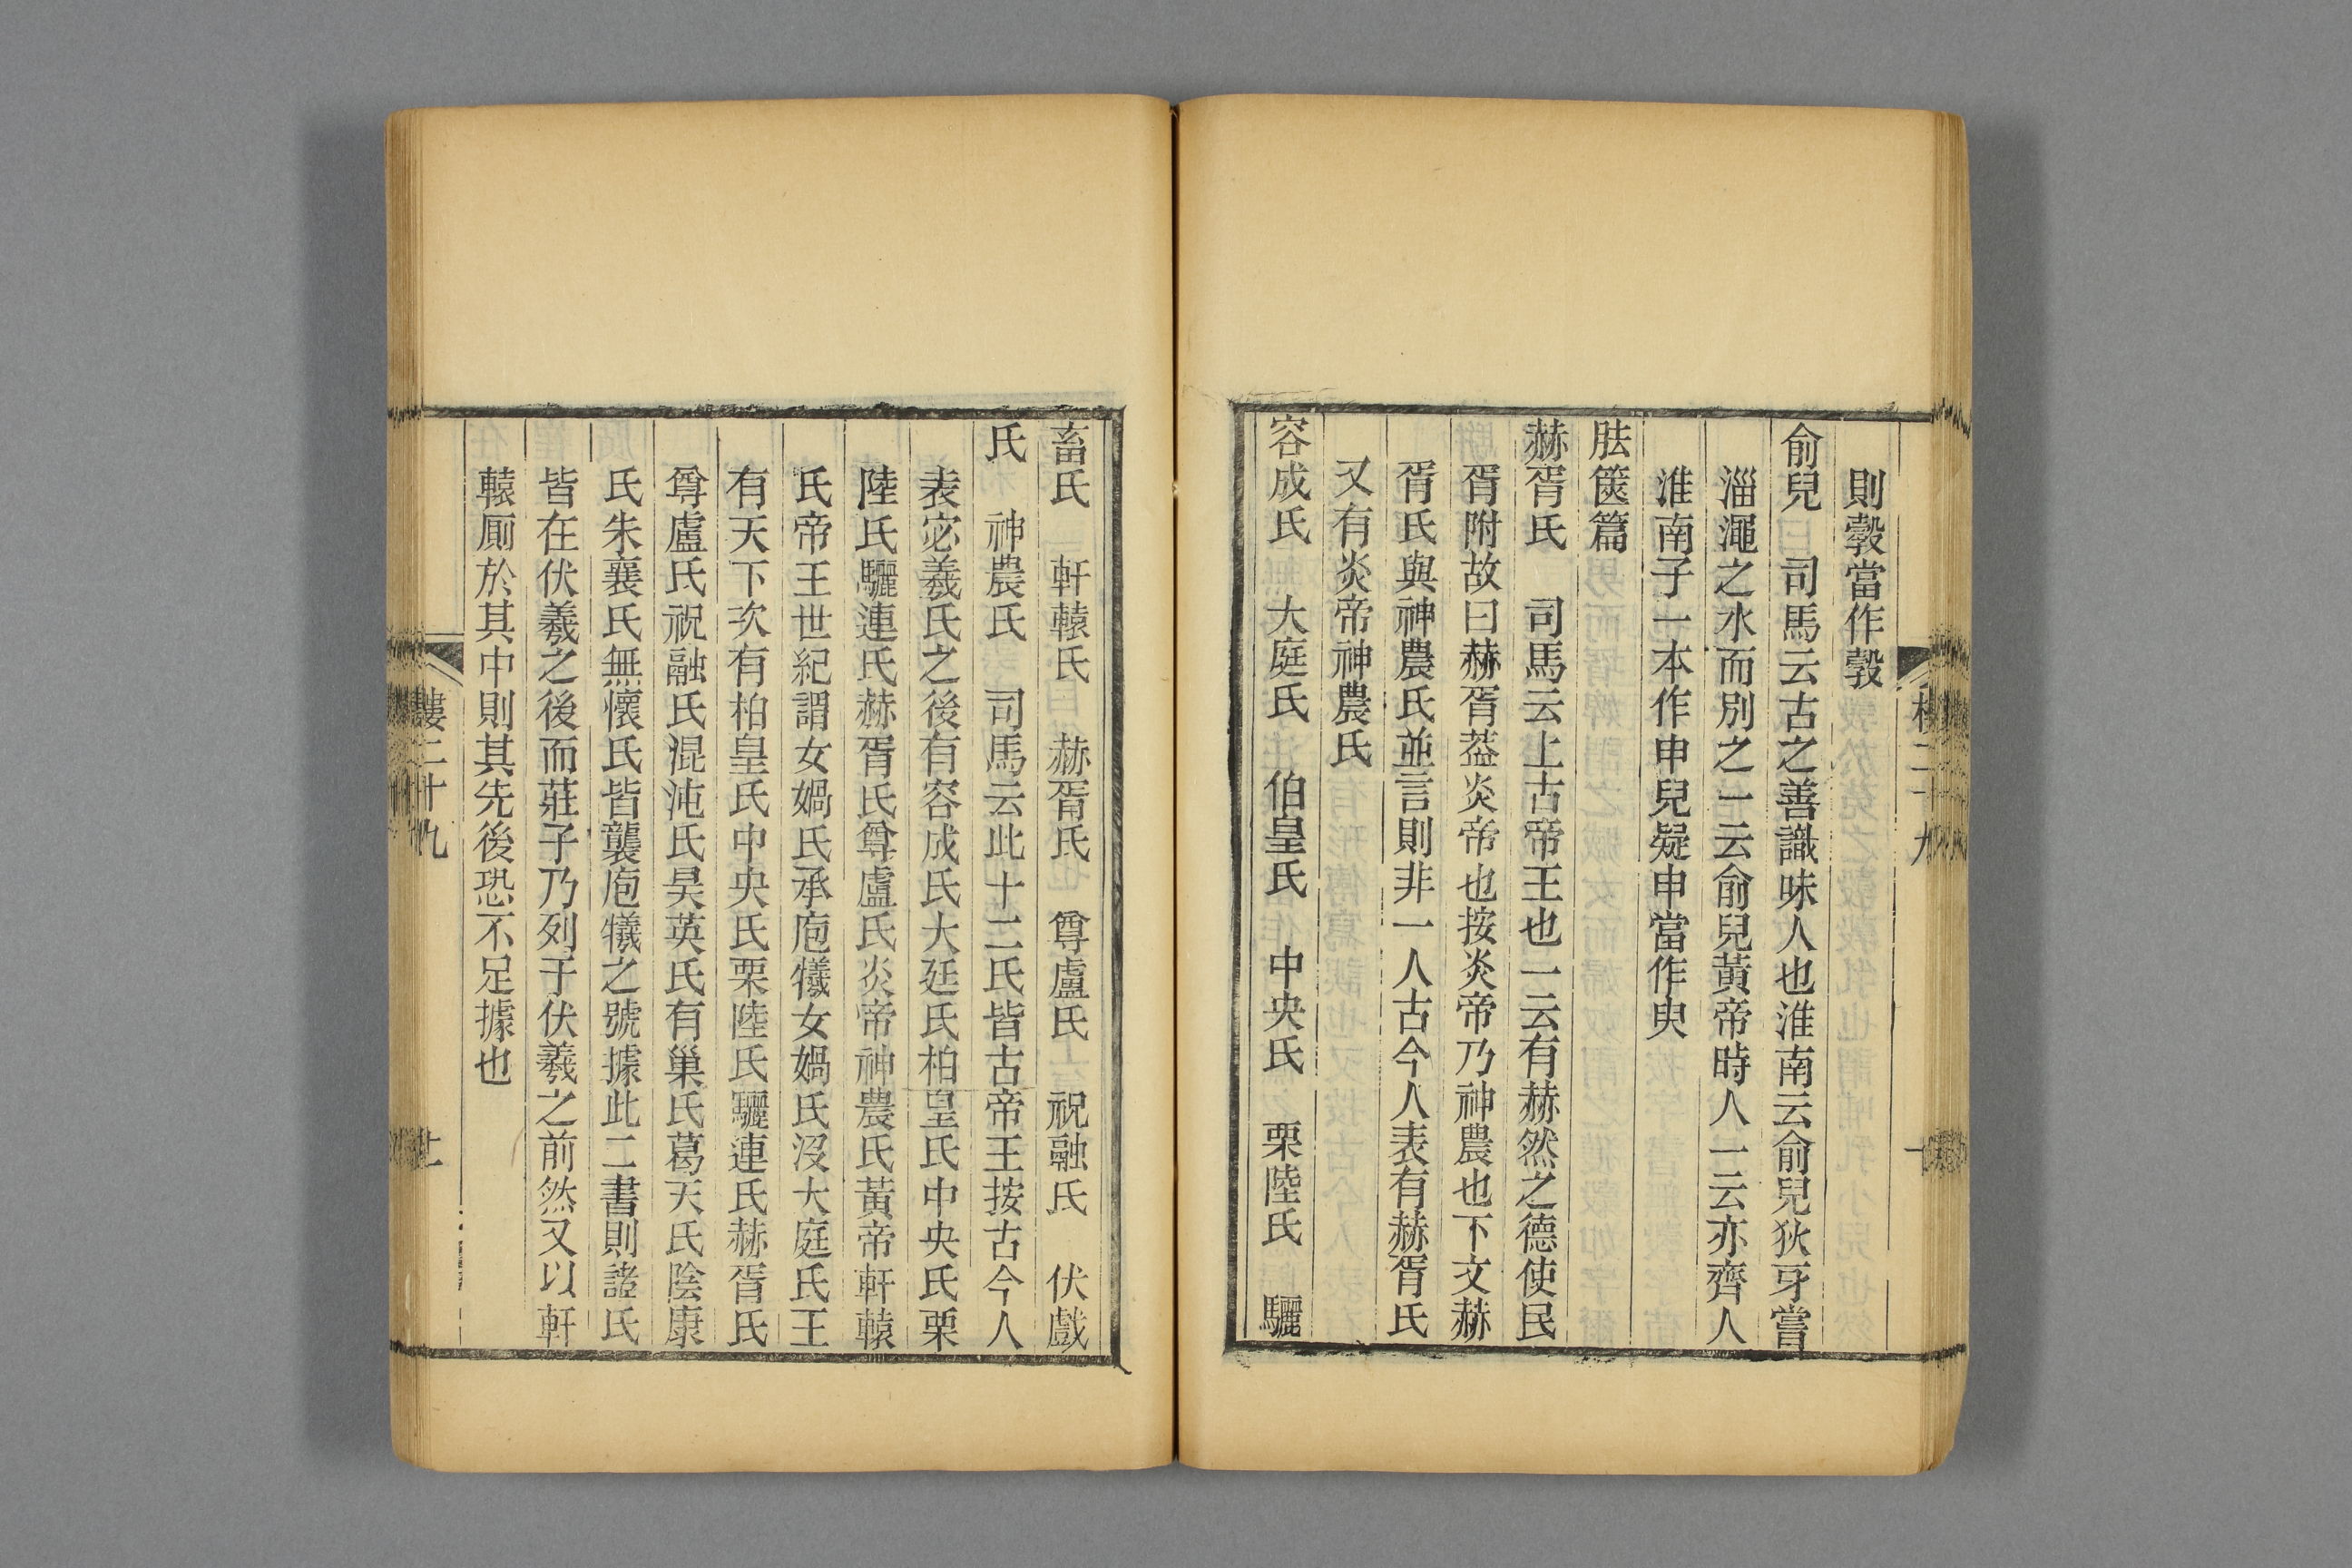 則㝅當作㝅
俞兒　司馬云古之善識味人也淮南云俞兒狄牙嘗
淄澠之水而別之一云俞兒黃帝時人一云亦齊人
淮南子一本作申兒疑申當作臾
胠篋篇
赫胥氏　司馬云上古帝王也一云有赫然之德使民
胥附故曰赫胥葢炎帝也按炎帝乃神農也下文赫
胥氏與神農氏並言則非一人古今人表有赫胥氏
又有炎帝神農氏
容成氏　大庭氏　伯皇氏　中央氏　栗陸氏　驪
畜氏　軒轅氏　赫胥氏　尊盧氏　祝融氏　伏戲
氏　神農氏　司馬云此十二氏皆古帝王按古今人
表宓羲氏之後有容成氏大廷氏柏皇氏中央氏栗
陸氏驪連氏赫胥氏尊盧氏炎帝神農氏黃帝軒轅
氏帝王世紀謂女媧氏承庖犧女媧氏沒大庭氏王
有天下次有柏皇氏中央氏栗陸氏驪連氏赫胥氏
尊盧氏祝融氏混沌氏昊英氏有巢氏葛天氏陰康
氏朱襄氏無懷氏皆襲庖犧之號據此二書則諸氏
皆在伏羲之後而莊子乃列于伏羲之前然又以軒
轅廁於其中則其先後恐不足據也
二十九